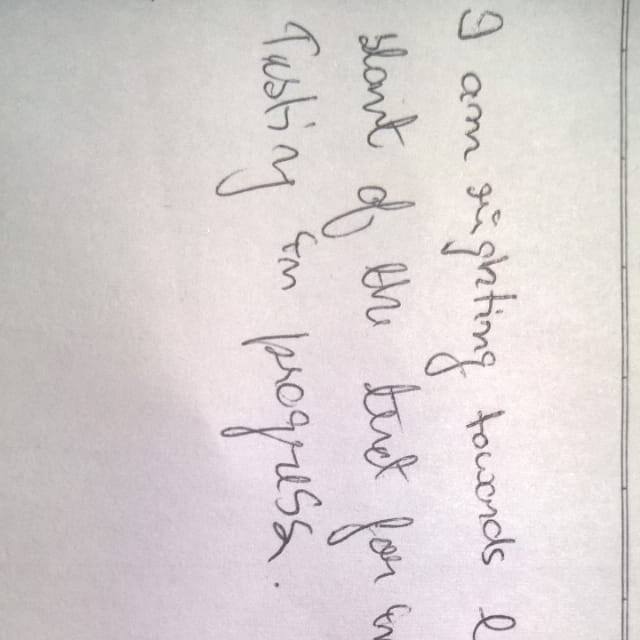 I am righting towards l
slant of the text for in
Testing in progress.